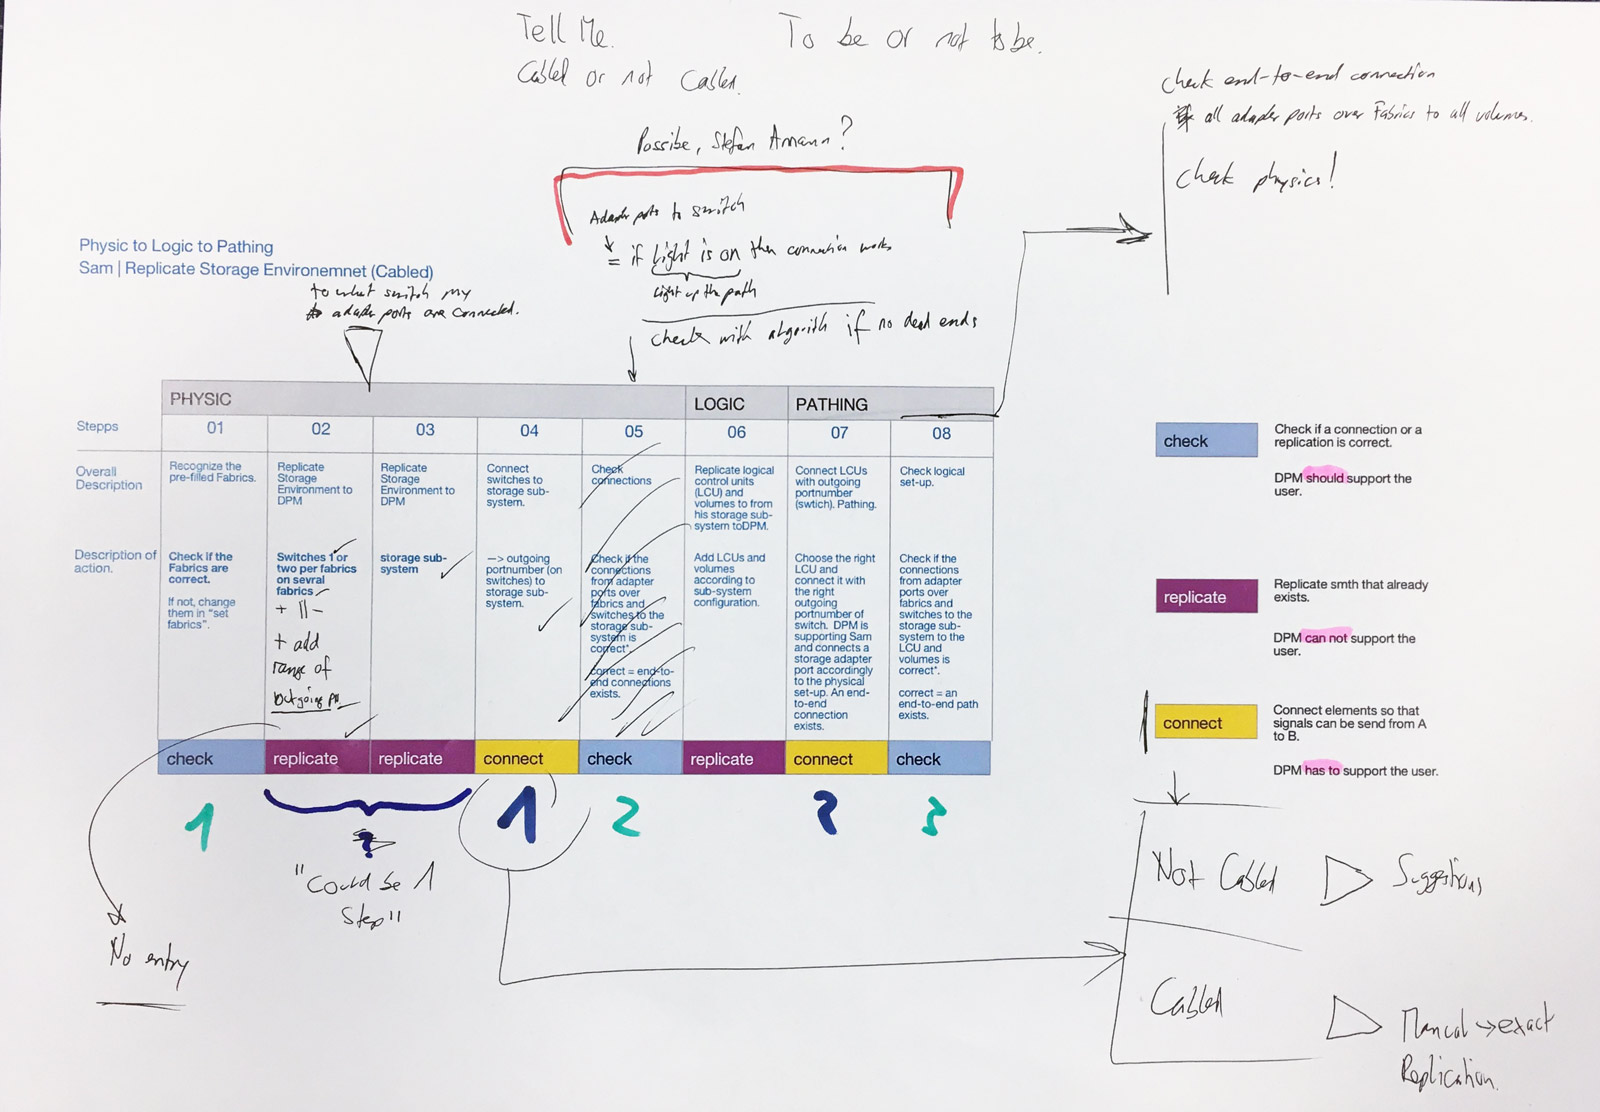 Tell Me.
Cabled or not Cabled.
To be or not to be.
Possibe, Stefan Amann?
Adapter ports to switch
= if Light is on then connection works
Light up the path
check with algorith if no dead ends
check end-to-end connection
all adapter ports over Fabrics to all volumes.
check physics!
Physic to Logic to Pathing
Sam | Replicate Storage Environemnet (Cabled)
to what switch my
adapter ports are connected.
PHYSIC
LOGIC
PATHING
Stepps
01
02
03
04
05
06
07
08
Overall
Description
Recognize the
pre-filled Fabrics.
Replicate
Storage
Environment to
DPM
Replicate
Storage
Environment to
DPM
Connect
switches to
storage sub-
system.
Check
connections
Replicate logical
control units
(LCU) and
volumes to from
his storage sub-
system toDPM.
Connect LCUs
with outgoing
portnumber
(swtich). Pathing.
Check logical
set-up.
Description of
action.
Check if the
Fabrics are
correct.
If not, change
them in "set
fabrics".
Switches 1 or
two per fabrics
on sevral
fabrics
+ || -
+ add
range of
outgoing
storage sub-
system
—> outgoing
portnumber (on
switches) to
storage sub-
system.
Check if the
connections
from adapter
ports over
fabrics and
switches to the
storage sub-
system is
correct*.
correct = end-to-
end connections
exists.
Add LCUs and
volumes
according to
sub-system
configuration.
Choose the right
LCU and
connect it with
the right
outgoing
portnumber of
switch. DPM is
supporting Sam
and connects a
storage adapter
port accordingly
to the physical
set-up. An end-
to-end
connection
exists.
Check if the
connections
from adapter
ports over
fabrics and
switches to the
storage sub-
system to the
LCU and
volumes is
correct*.
correct = an
end-to-end path
exists.
check
replicate
replicate
connect
check
replicate
connect
check
1
?
1
2
2
3
"Could be 1
Step"
No entry
check
Check if a connection or a
replication is correct.
DPM should support the
user.
replicate
Replicate smth that already
exists.
DPM can not support the
user.
connect
Connect elements so that
signals can be send from A
to B.
DPM has to support the user.
Not Cabled
Suggestions
Cabled
Manual → exact
Replication.